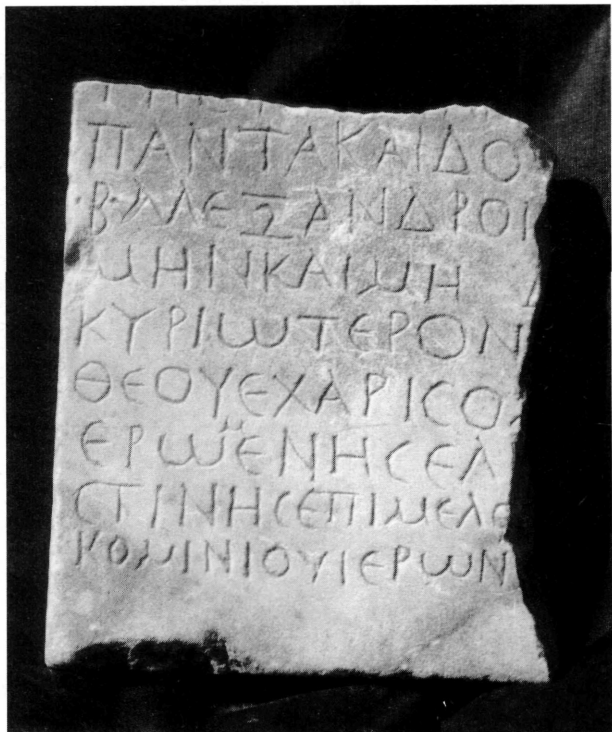 ΠΑΝΤΑΚΑΙΔΟ
·Β·ΑΛΕΞΑΝΔΡΟΙ
ΜΗΝΚΑΙΜΗ Λ
ΚΥΡΙΩΤΕΡΟΝ
ΘΕΟΥΕΧΑΡΙCΟ
ΕΡΩ̈ΕΝΗCΕΛ
CΤΙΝΗCΕΠΙΜΕΛΕ
ΚΟΜΙΝΙΟΥΙΕΡΩΝ